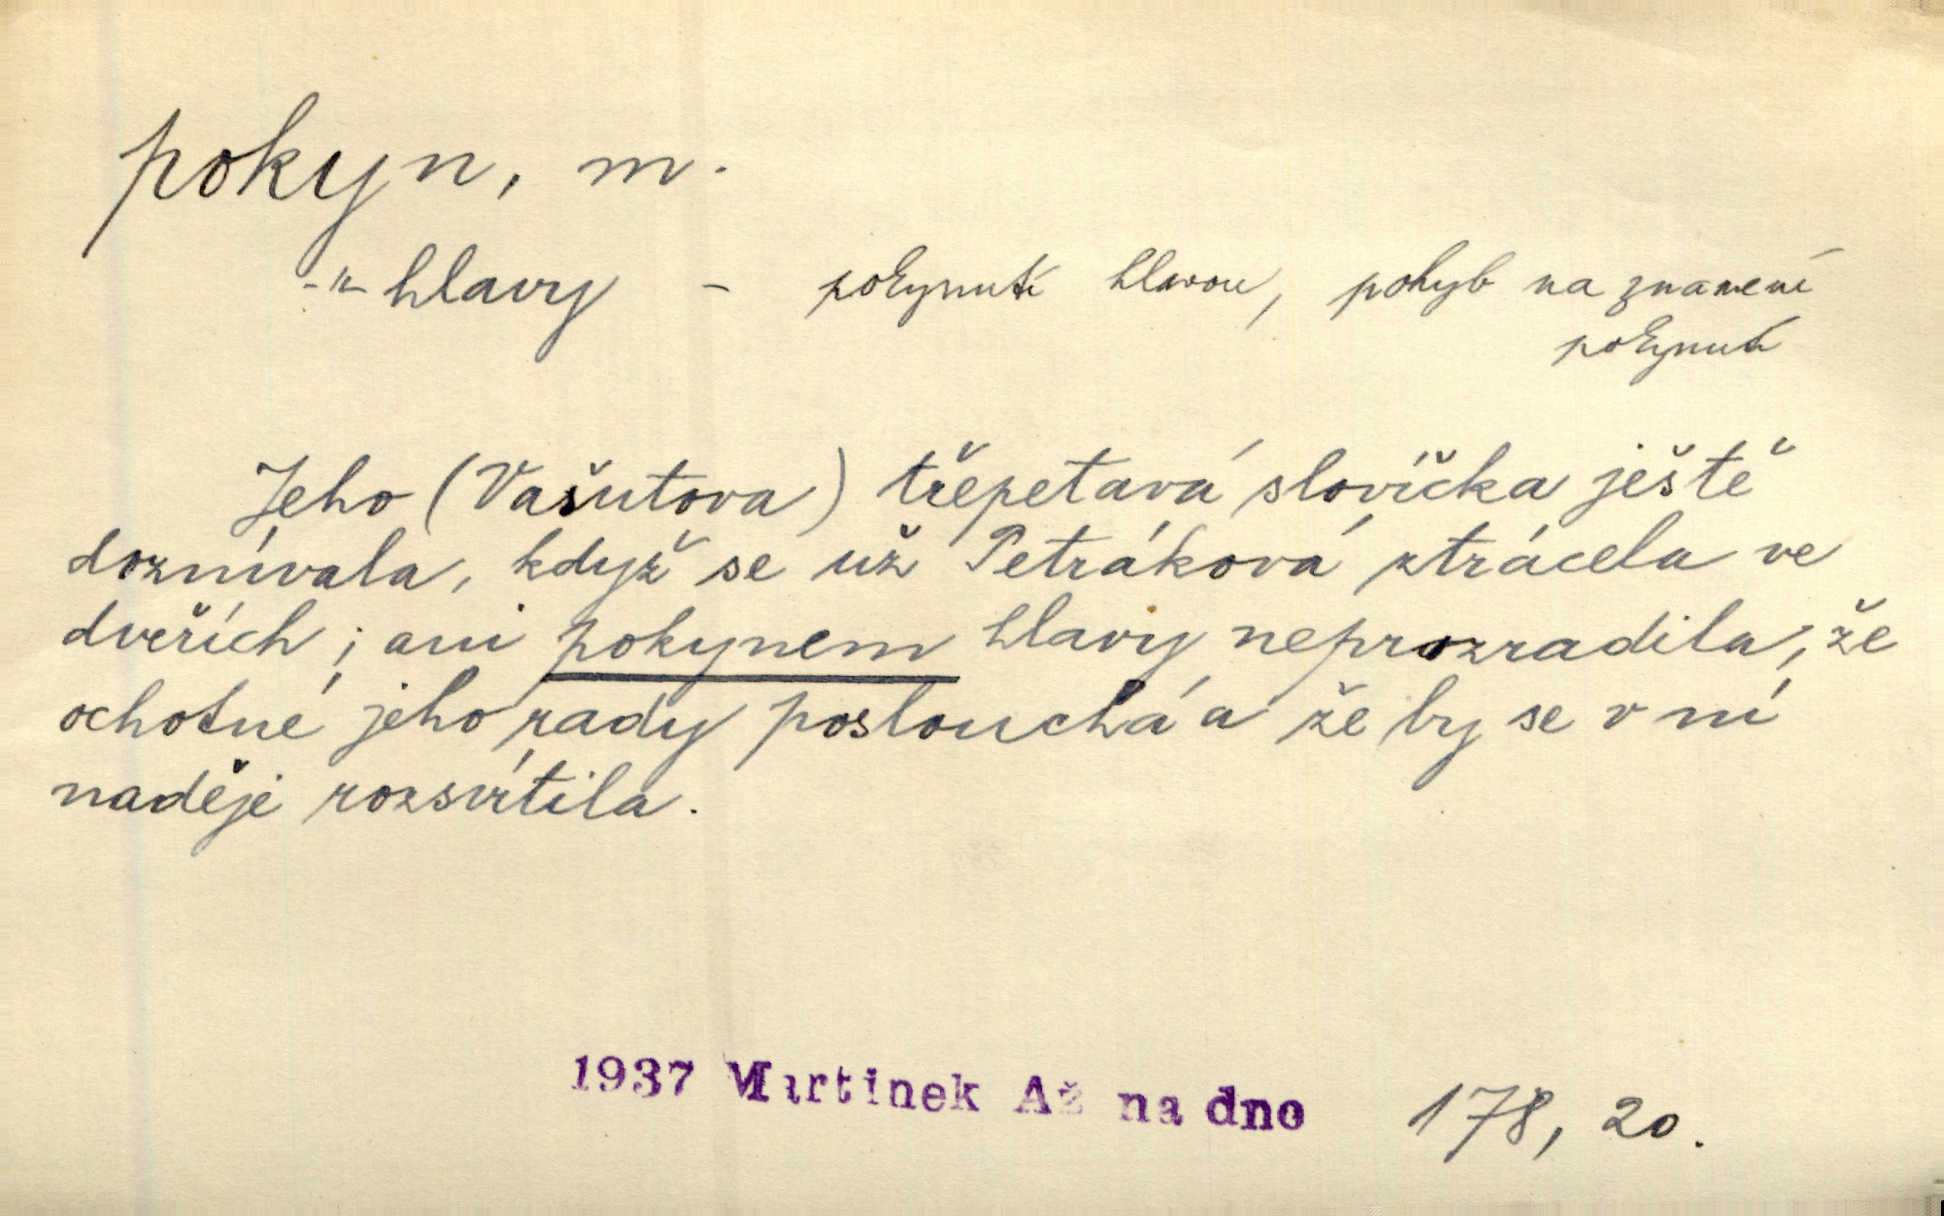 pokyn, m.
-"- hlavy - pokynutí hlavou, pohyb na znamení
pokynutí
Jeho (Vašutova) třepetavá slovíčka ještě
doznívala, když se už Petráková ztrácela ve
dveřích; ani pokynem hlavy neprozradila, že
ochotně jeho rady poslouchá a že by se v ní
naděje rozsvítila.
1937 Martinek Až na dno 178, 20.